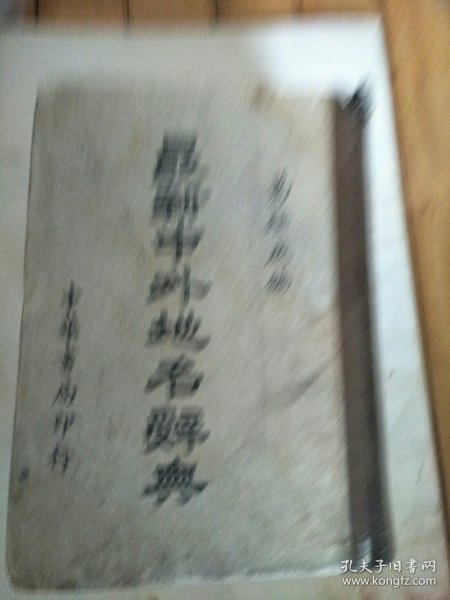 葛绥成编
最新中外地名辞典
中华书局印行
孔夫子旧书网
www.kongfz.com